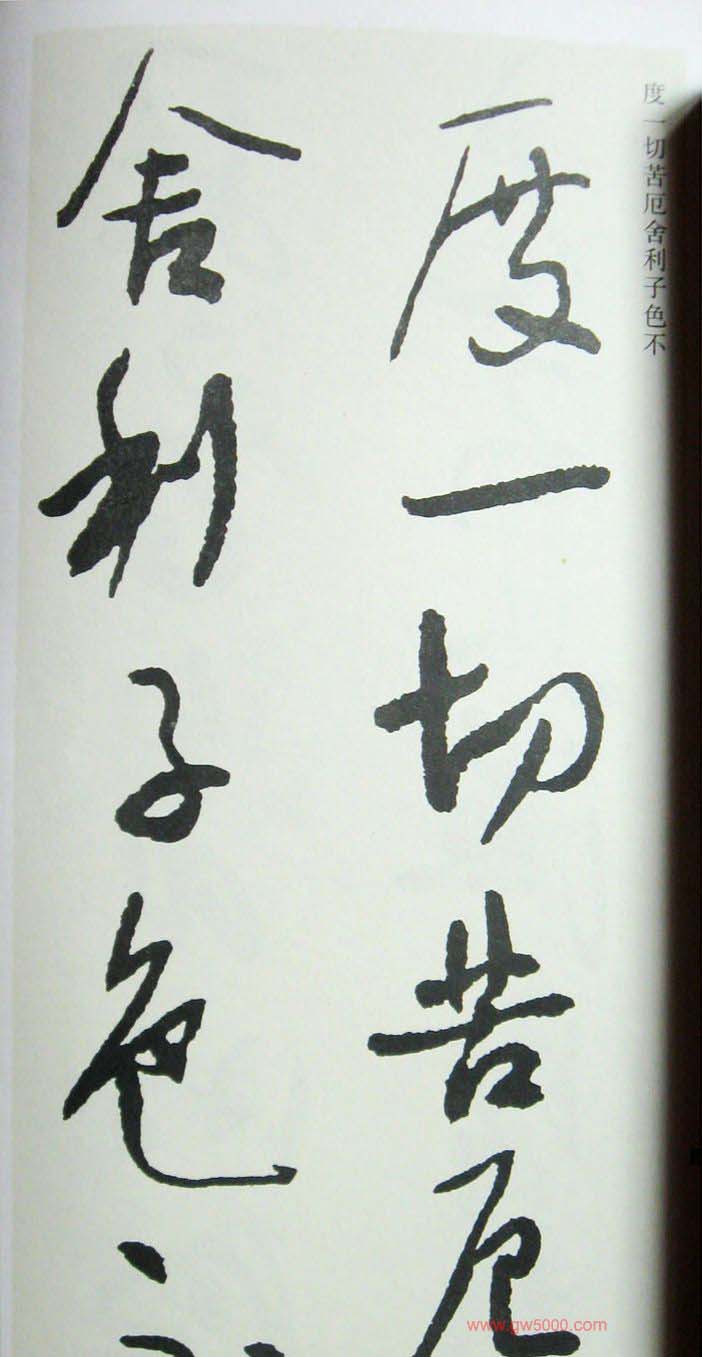 度一切苦厄舍利子色不
度一切苦厄
舍利子色不
www.gw5000.com